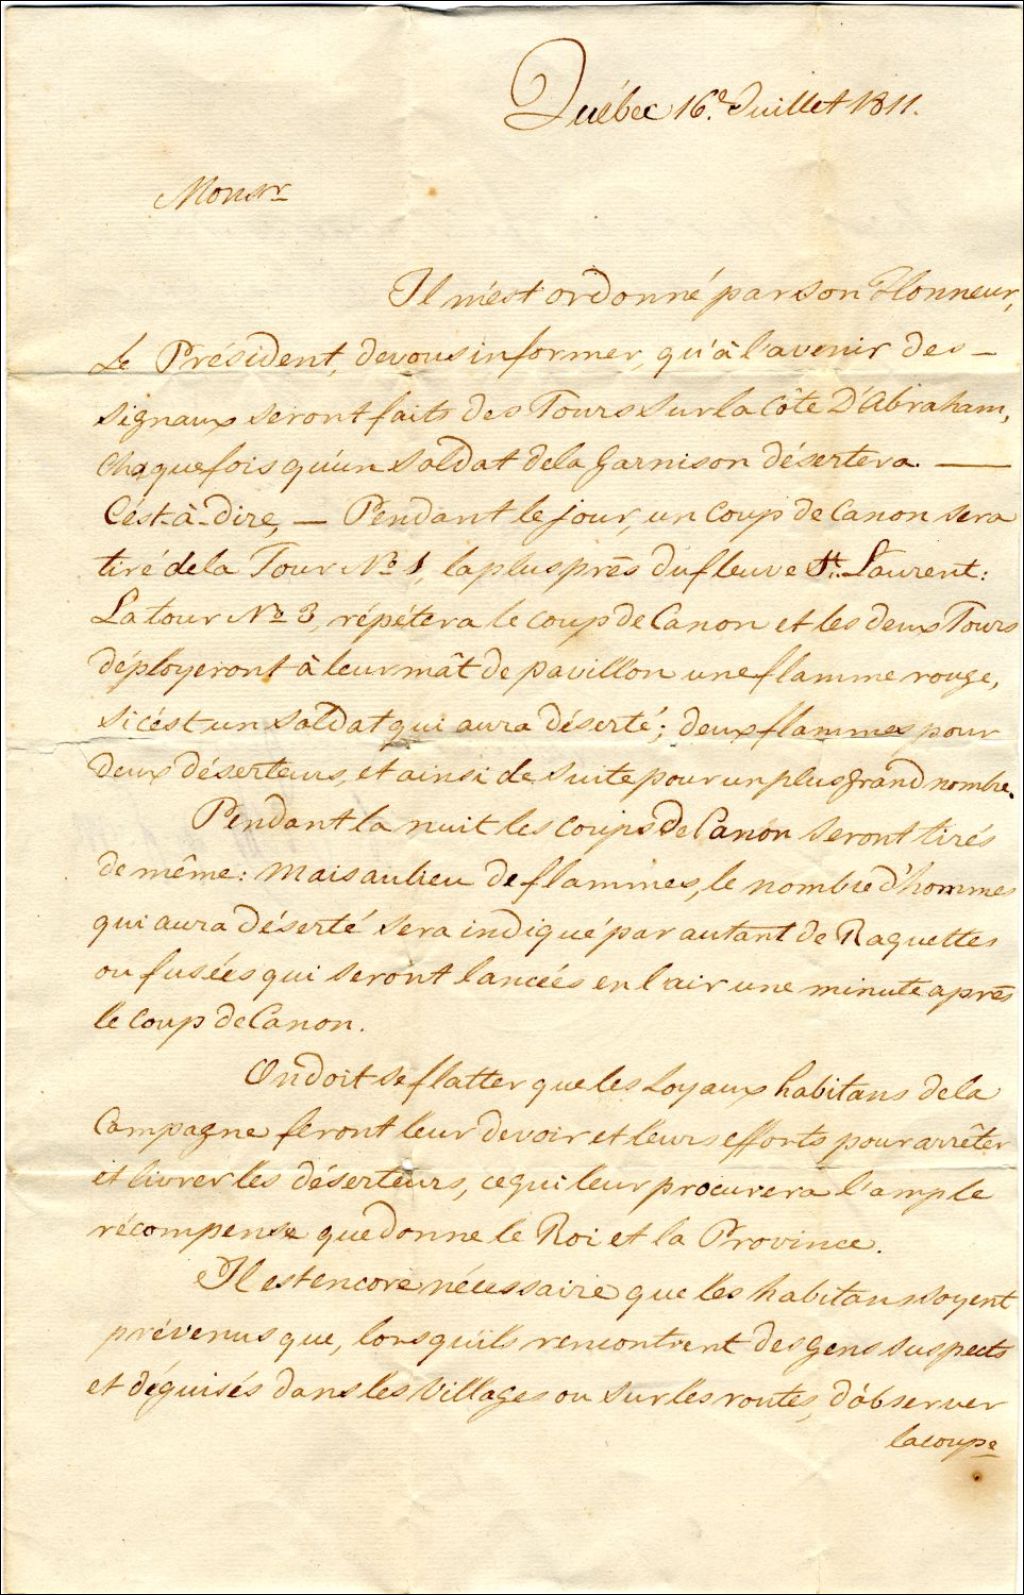 Québec 16e. Juillet 1811.
Monsr
Il m'est ordonné par son Honneur,
Le Président, de vous informer, qu'à l'avenir des
signaux seront faits des Tours sur la Côte D'Abraham,
Chaque fois qu'un Soldat de la Garnison désertera. —
C'est-à-dire, — Pendant le jour, un Coup de Canon sera
tiré de la Tour No 1, la plus près du fleuve St. Laurent:
La tour No 3, répétera le coup de Canon et les deux Tours
déployeront à leur mât de pavillon une flamme rouge,
si c'est un Soldat qui aura déserté; deux flammes pour
deux déserteurs, et ainsi de suite pour un plus grand nombre.
Pendant la nuit les coups de Canon seront tirés
de même: Mais au lieu de flammes, le nombre d'hommes
qui aura déserté sera indiqué par autant de Raquettes
ou fusées qui seront lancées en l'air une minute après
le Coup de Canon.
On doit se flatter que les Loyaux habitans de la
Campagne feront leur devoir et leurs efforts pour arrêter
et livrer les déserteurs, ce qui leur procurera l'ample
récompense que donne le Roi et la Province.
Il est encore nécessaire que les habitans soyent
prévenus que, lorsqu'ils rencontrent des gens suspects
et déguisés dans les Villages ou sur les routes, d'observer
la coupe